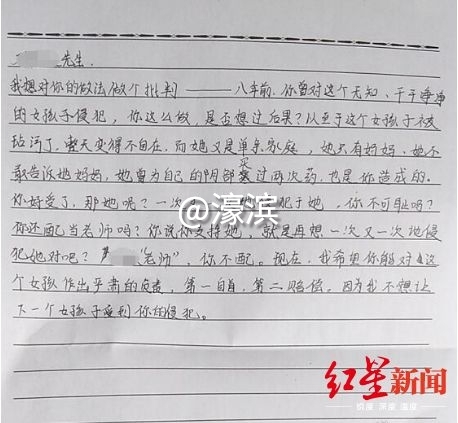 先生.
我想对你的做法做个批判——八年前,你曾对这个无知、干干净净
的女孩子侵犯,你这么做,是否想过后果?从至于这个女孩子不皮
玷污了,整天变得不自在.而她又是单亲家庭,她只有妈妈,她不
敢告诉她妈妈,她曾为自己的阴部买过两次药,也是你造成的.
你好受了,那她呢?一次 犯于她,你不可耻吗?
你还配当老师吗?你说你支持她,就是再想一次又一次地侵
犯她对吧? "老师",你不配.现在,我希望你能对这
个女孩作出严肃的负责,第一自首,第二赔偿.因为我不想让
下一个女孩子受到你的侵犯。
@濠滨
红星新闻
锐度 深度 温度